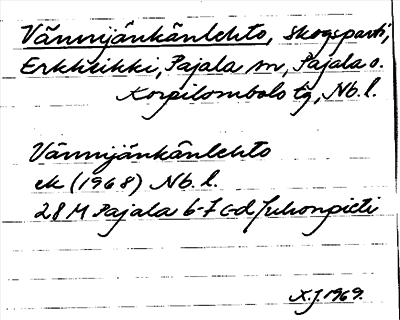 Vännijänkänlehto, skogsparti,
Erkheikki, Pajala sn, Pajala o.
Korpilombolo tg, Nb. l.
Vännijänkänlehto
ek (1968) Nb. l.
28 M Pajala 6-7 c-d Juhonpieti
X.J. 1969.